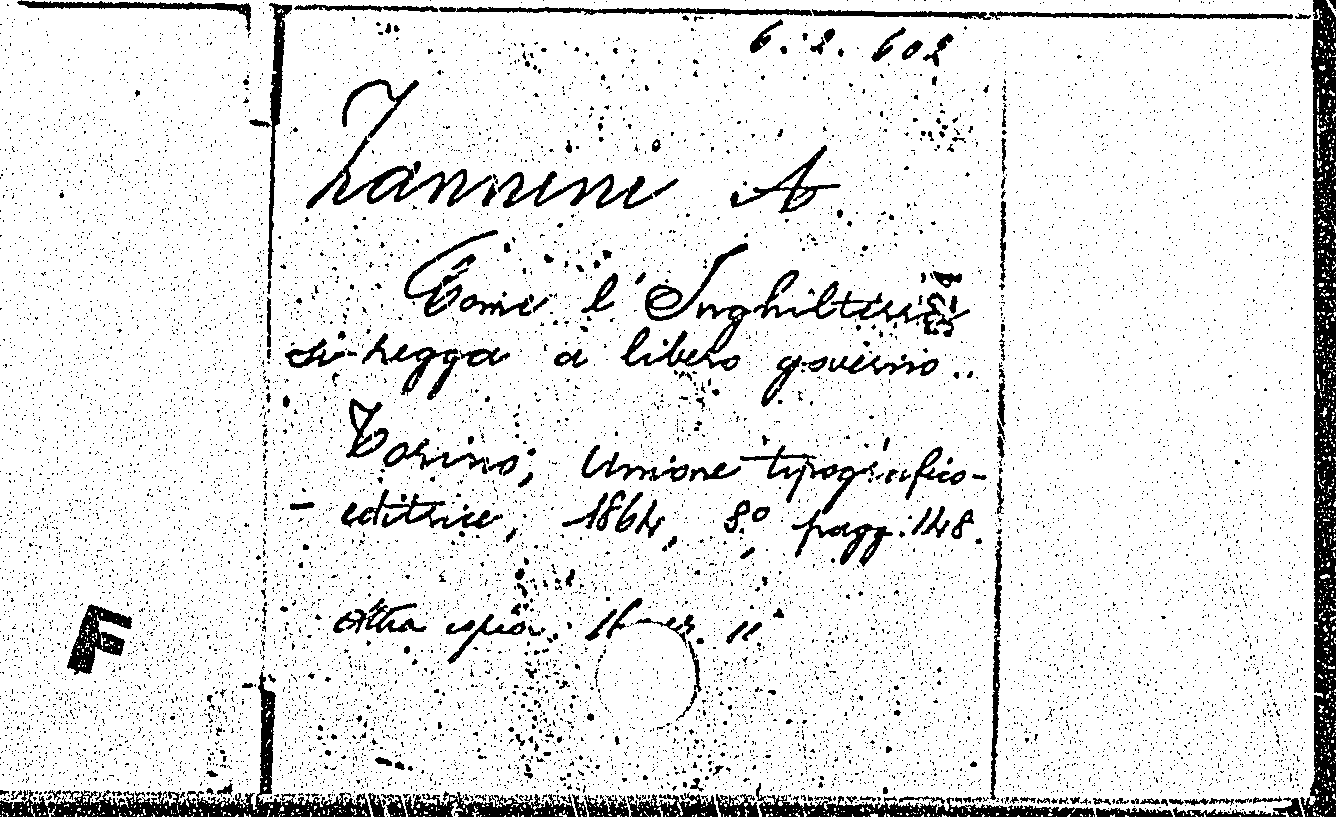 6. 2. 602
Zannini A
Come l'Inghilterra
si regga a libero governo..
Torino, Unione tipografico-
- editrice, 1864, 8º, pagg. 148.
Altra copia.
F